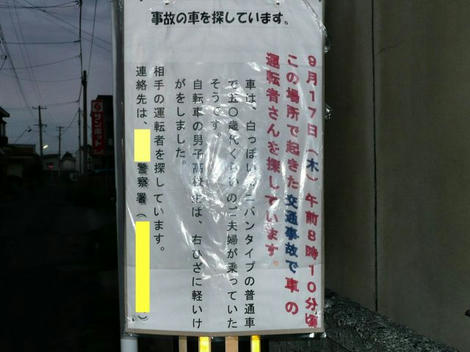 事故の車を探しています。
9月17日(木)午前8時10分頃
この場所で起きた交通事故で車の
運転者さんを探しています。
車は、白っぽいミニバンタイプの普通車
で五〇歳代くらいのご夫婦が乗っていた
そうです。
自転車の男子高校生は、右ひざに軽いけ
がをしました。
相手の運転者を探しています。
連絡先は、 警察署(